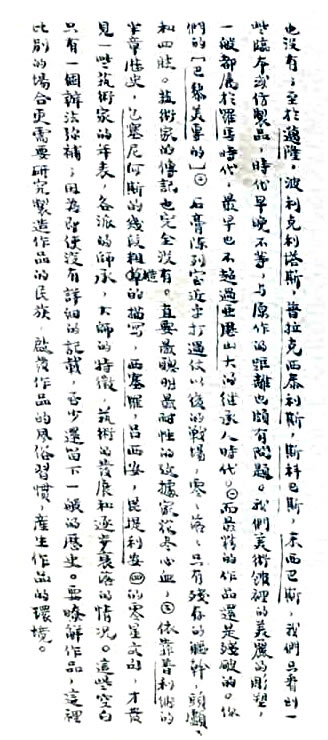 也沒有；至於邁隆，波利克利塔斯，普拉克西泰利斯，斯科巴斯，來西巴斯，我們只看到一
些臨本或仿製品，時代早晚不等，與原作的距離也頗有問題。我們美術館裡的美麗的彫塑，
一般都屬於羅馬時代，最早也不超過亞歷山大的繼承人時代。㊀而最精的作品還是殘破的。你
們的【巴黎美專的】㊉石膏陳列室近乎打過仗以後的戰場，零零落落，只有殘存的軀幹，頭顱，
和四肢。藝術家的傳記也完全沒有。直要最聰明最耐性的考據家挖盡心血，㊂依靠普利納的
半章歷史，包塞尼阿斯的幾段粗糙的描寫，西塞羅，呂西安，昆提利安㊃的零星文句，才發
見一些藝術家的年表，各派的師承，大師的特徵，藝術的發展和逐步衰落的情況。這些空白
只有一個辦法彌補；因為即使沒有詳細的記載，至少還留下一般的歷史。要瞭解作品，這裡
比別的場合更需要研究製造作品的民族，啟發作品的風俗習慣，產生作品的環境。